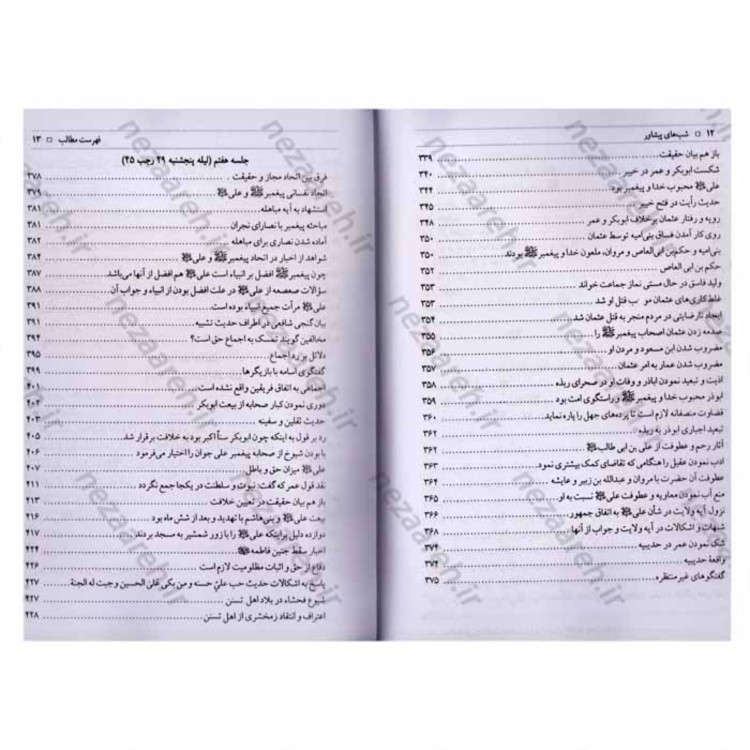 ۱۲ □ شب‌های پیشاور
باز هم بیان حقیقت ۳۳۹
شکست ابوبکر و عمر در خیبر ۳۴۰
علی محبوب خدا و پیغمبر بود ۳۴۴
حدیث رأیت در فتح خیبر ۳۴۵
رویه و رفتار عثمان برخلاف ابوبکر و عمر ۳۴۸
روی کار آمدن فساق بنی‌امیه توسط عثمان ۳۵۰
بنی‌امیه و حکم‌بن ابی‌العاص و مروان، ملعون خدا و پیغمبرﷺ بودند ۳۵۰
حکم‌بن ابی العاص ۳۵۲
ولید فاسق در حال مستی نماز جماعت خواند ۳۵۳
غلط‌کاری‌های عثمان مو ب قتل او شد ۳۵۳
ایجاد نارضایتی در مردم منجر به قتل عثمان شد ۳۵۴
صدمه زدن عثمان اصحاب پیغمبرﷺ را ۳۵۵
مضروب شدن ابن مسعود و مردن او ۳۵۶
مضروب شدن عمار به امر عثمان ۳۵۷
اذیت و تبعید نمودن اباذر و وفات او در صحرای ربذه ۳۵۸
ابوذر محبوب خدا و پیغمبرﷺ و راستگوی امت بود ۳۵۹
قضاوت منصفانه لازم است تا پرده‌های جهل را پاره نماید ۳۶۰
تبعید اجباری ابوذر به ربذه ۳۶۲
آثار رحم و عطوفت از علی بن ابی طالب ۳۶۲
ادب نمودن عقیل را هنگامی که تقاضای کمک بیشتری نمود ۳۶۳
عطوفت آن حضرت با مروان و عبدالله بن زبیر و عایشه ۳۶۴
منع آب نمودن معاویه و عطوفت علی نسبت به او ۳۶۵
نزول آیه ولایت در شأن علی به اتفاق جمهور ۳۶۶
شبهات و اشکالات در آیه ولایت و جواب از آنها ۳۶۸
شک نمودن عمر در حدیبیه ۳۷۴
واقعهٔ حدیبیه ۳۷۴
گفتگوهای غیرمنتظره ۳۷۵
فهرست مطالب □ ۱۳
جلسه هفتم (لیله پنجشنبه ۲۹ رجب ۴۵)
فرق بین اتحاد مجاز و حقیقت ۳۷۸
اتحاد نفسانی پیغمبرﷺ و علی ۳۷۹
استشهاد به آیه مباهله ۳۸۱
مباحثه پیغمبر با نصارای نجران ۳۸۱
آماده شدن نصاری برای مباهله ۳۸۲
شواهد از اخبار در اتحاد پیغمبرﷺ و علی ۳۸۴
چون پیغمبرﷺ افضل بر انبیاء است علی هم افضل از آنها می‌باشد ۳۸۷
سؤالات صعصعه از علی در علت افضل بودن از انبیاء و جواب آن ۳۸۸
علی مرآت جمیع انبیاء بوده است ۳۹۱
بیان گنجی شافعی در اطراف حدیث تشبیه ۳۹۱
مخالفین گویند تمسک به اجماع حق است؟ ۳۹۴
دلائل بر رد اجماع ۳۹۵
گفتگوی اسامه با بازیگرها ۳۹۹
اجماعی به اتفاق فریقین واقع نشده است ۴۰۱
دوری نمودن کبار صحابه از بیعت ابوبکر ۴۰۲
حدیث ثقلین و سفینه ۴۰۳
رد بر قول به اینکه چون ابوبکر سناً اکبر بود به خلافت برقرار شد ۴۰۵
با بودن شیوخ از صحابه پیغمبر علی جوان را اختیار می‌فرمود ۴۰۶
علی میزان حق و باطل ۴۰۷
نقد قول عمر که گفت: نبوت و سلطنت در یکجا جمع نگردد ۴۱۱
باز هم بیان حقیقت در تعیین خلافت ۴۱۳
بیعت علی و بنی‌هاشم با تهدید و بعد از شش ماه بود ۴۱۶
دوازده دلیل براینکه علی را با زور شمشیر به مسجد بردند ۴۱۷
اخبار سقط جنین فاطمه ۴۲۴
دفاع از حق و اثبات مظلومیت لازم است ۴۲۶
پاسخ به اشکالات حدیث حب علیّ حسنه و من بکی علی الحسین وجبت له الجنة ۴۲۷
شیوع فحشاء در بلاد اهل تسنن ۴۲۷
اعتراف و انتقاد زمخشری از اهل تسنن ۴۲۸
nezaareh.ir